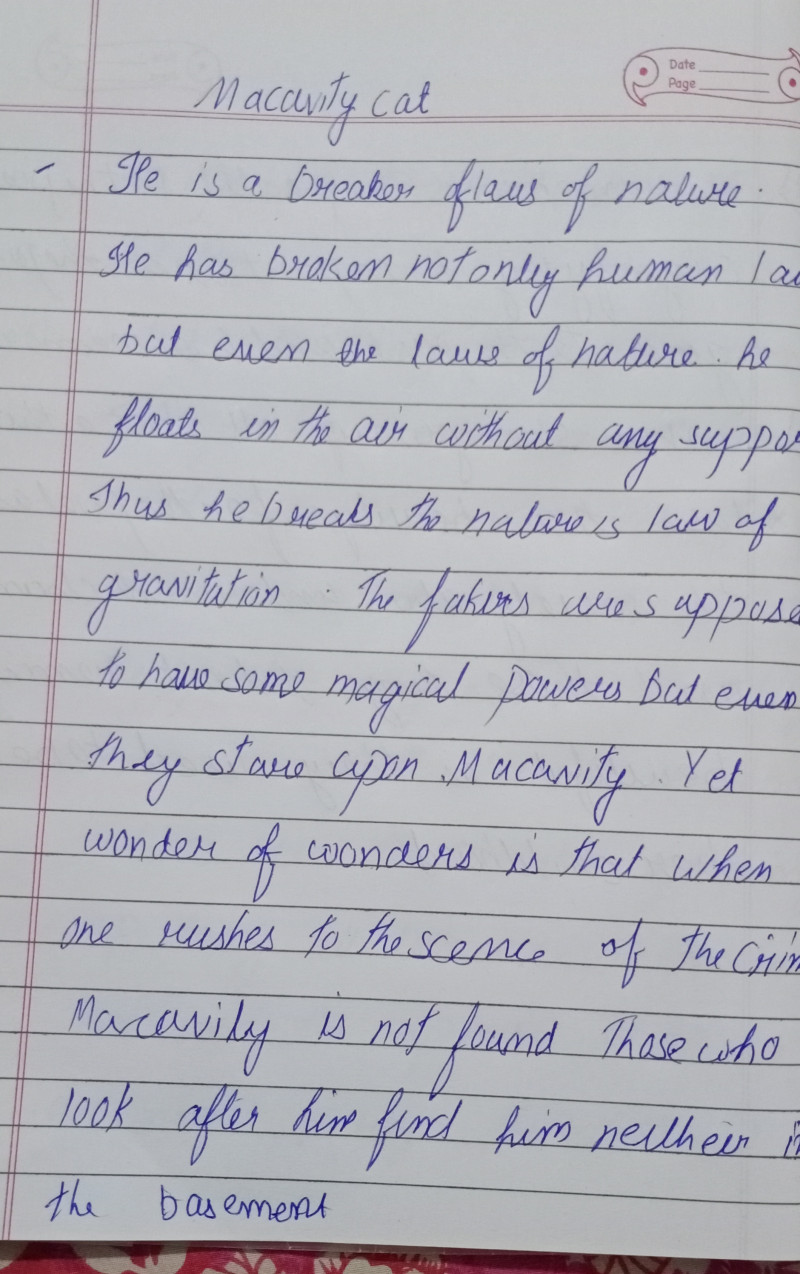 Date
Page
Macavity cat
- He is a breaker of laws of nature.
He has broken not only human la
but even the laws of nature. he
floats in the air without any suppo
Thus he breaks the nature is law of
gravitation. The fakirs are suppose
to have some magical powers but even
they stare upon Macavity. Yet
wonder of wonders is that when
one rushes to the scence of the Crim
Macavity is not found Those who
look after him find him neither i
the basement